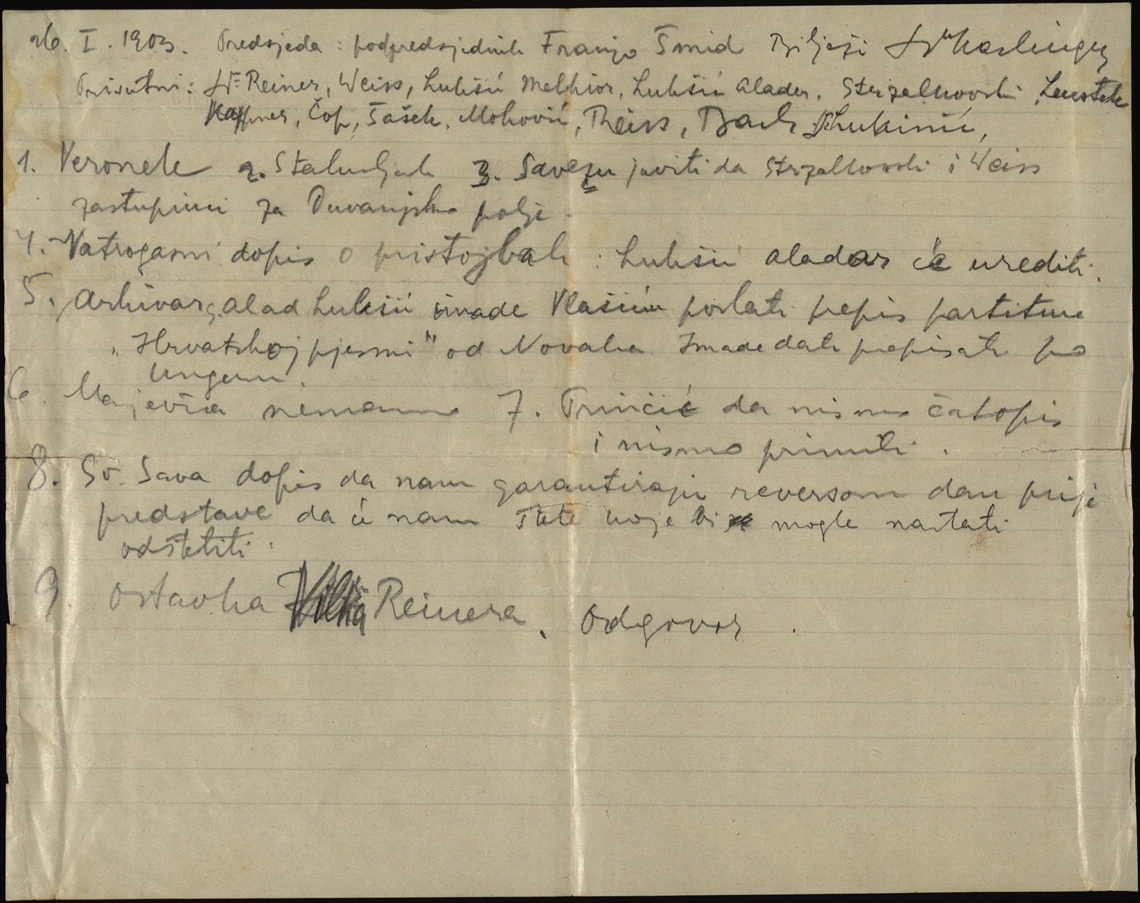 26. I. 1903. Predsjeda: podpredsjednik Franjo Šmid Bilježi Dr Karlinger
Prisutni: Dr. Reiner, Weiss, Lukšić Melkior, Lukšić Alader, Strzalkowski,
Čop, Šašek, Mohović, Reiss, Bach
1. Veronek 2. Stahuljak 3. Savezu javiti da Strzalkowski i Weiss
zastupnici za Duvanjsko polje.
4. Vatrogasni dopis o pristojbah: Lukšić Aladar će urediti.
5. Arhivar, Alad Lukšić imade Vlašiću poslati prepis partiture
"Hrvatskoj pjesmi" od Novaka Imade dati prepisati po
Ungeru.
6. Majevica nemamo 7. da nismo časopis
i nismo primili.
8. Sv. Sava dopis da nam garantiraju reversom dan prije
predstave da će nam štete koje bi mogle nastati
odštetiti.
9. Ostavka Reinera. Odgovor.